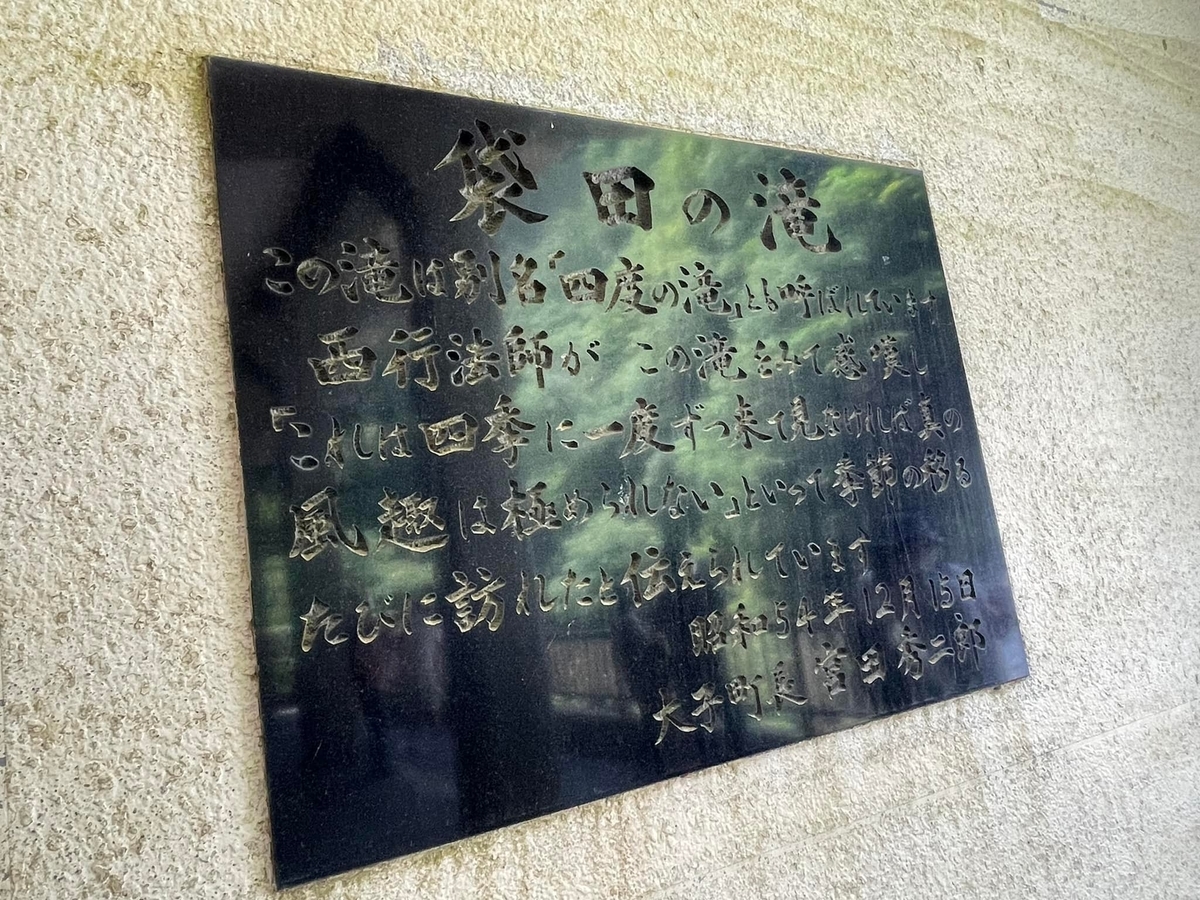 袋田の滝
この滝は別名「四度の滝」とも呼ばれています
西行法師が この滝をみて感嘆し
「これは四季に一度ずつ来て見なければ真の
風趣は極められない」といって季節の移る
たびに訪れたと伝えられています
昭和54年12月15日
大子町長 富田秀二郎